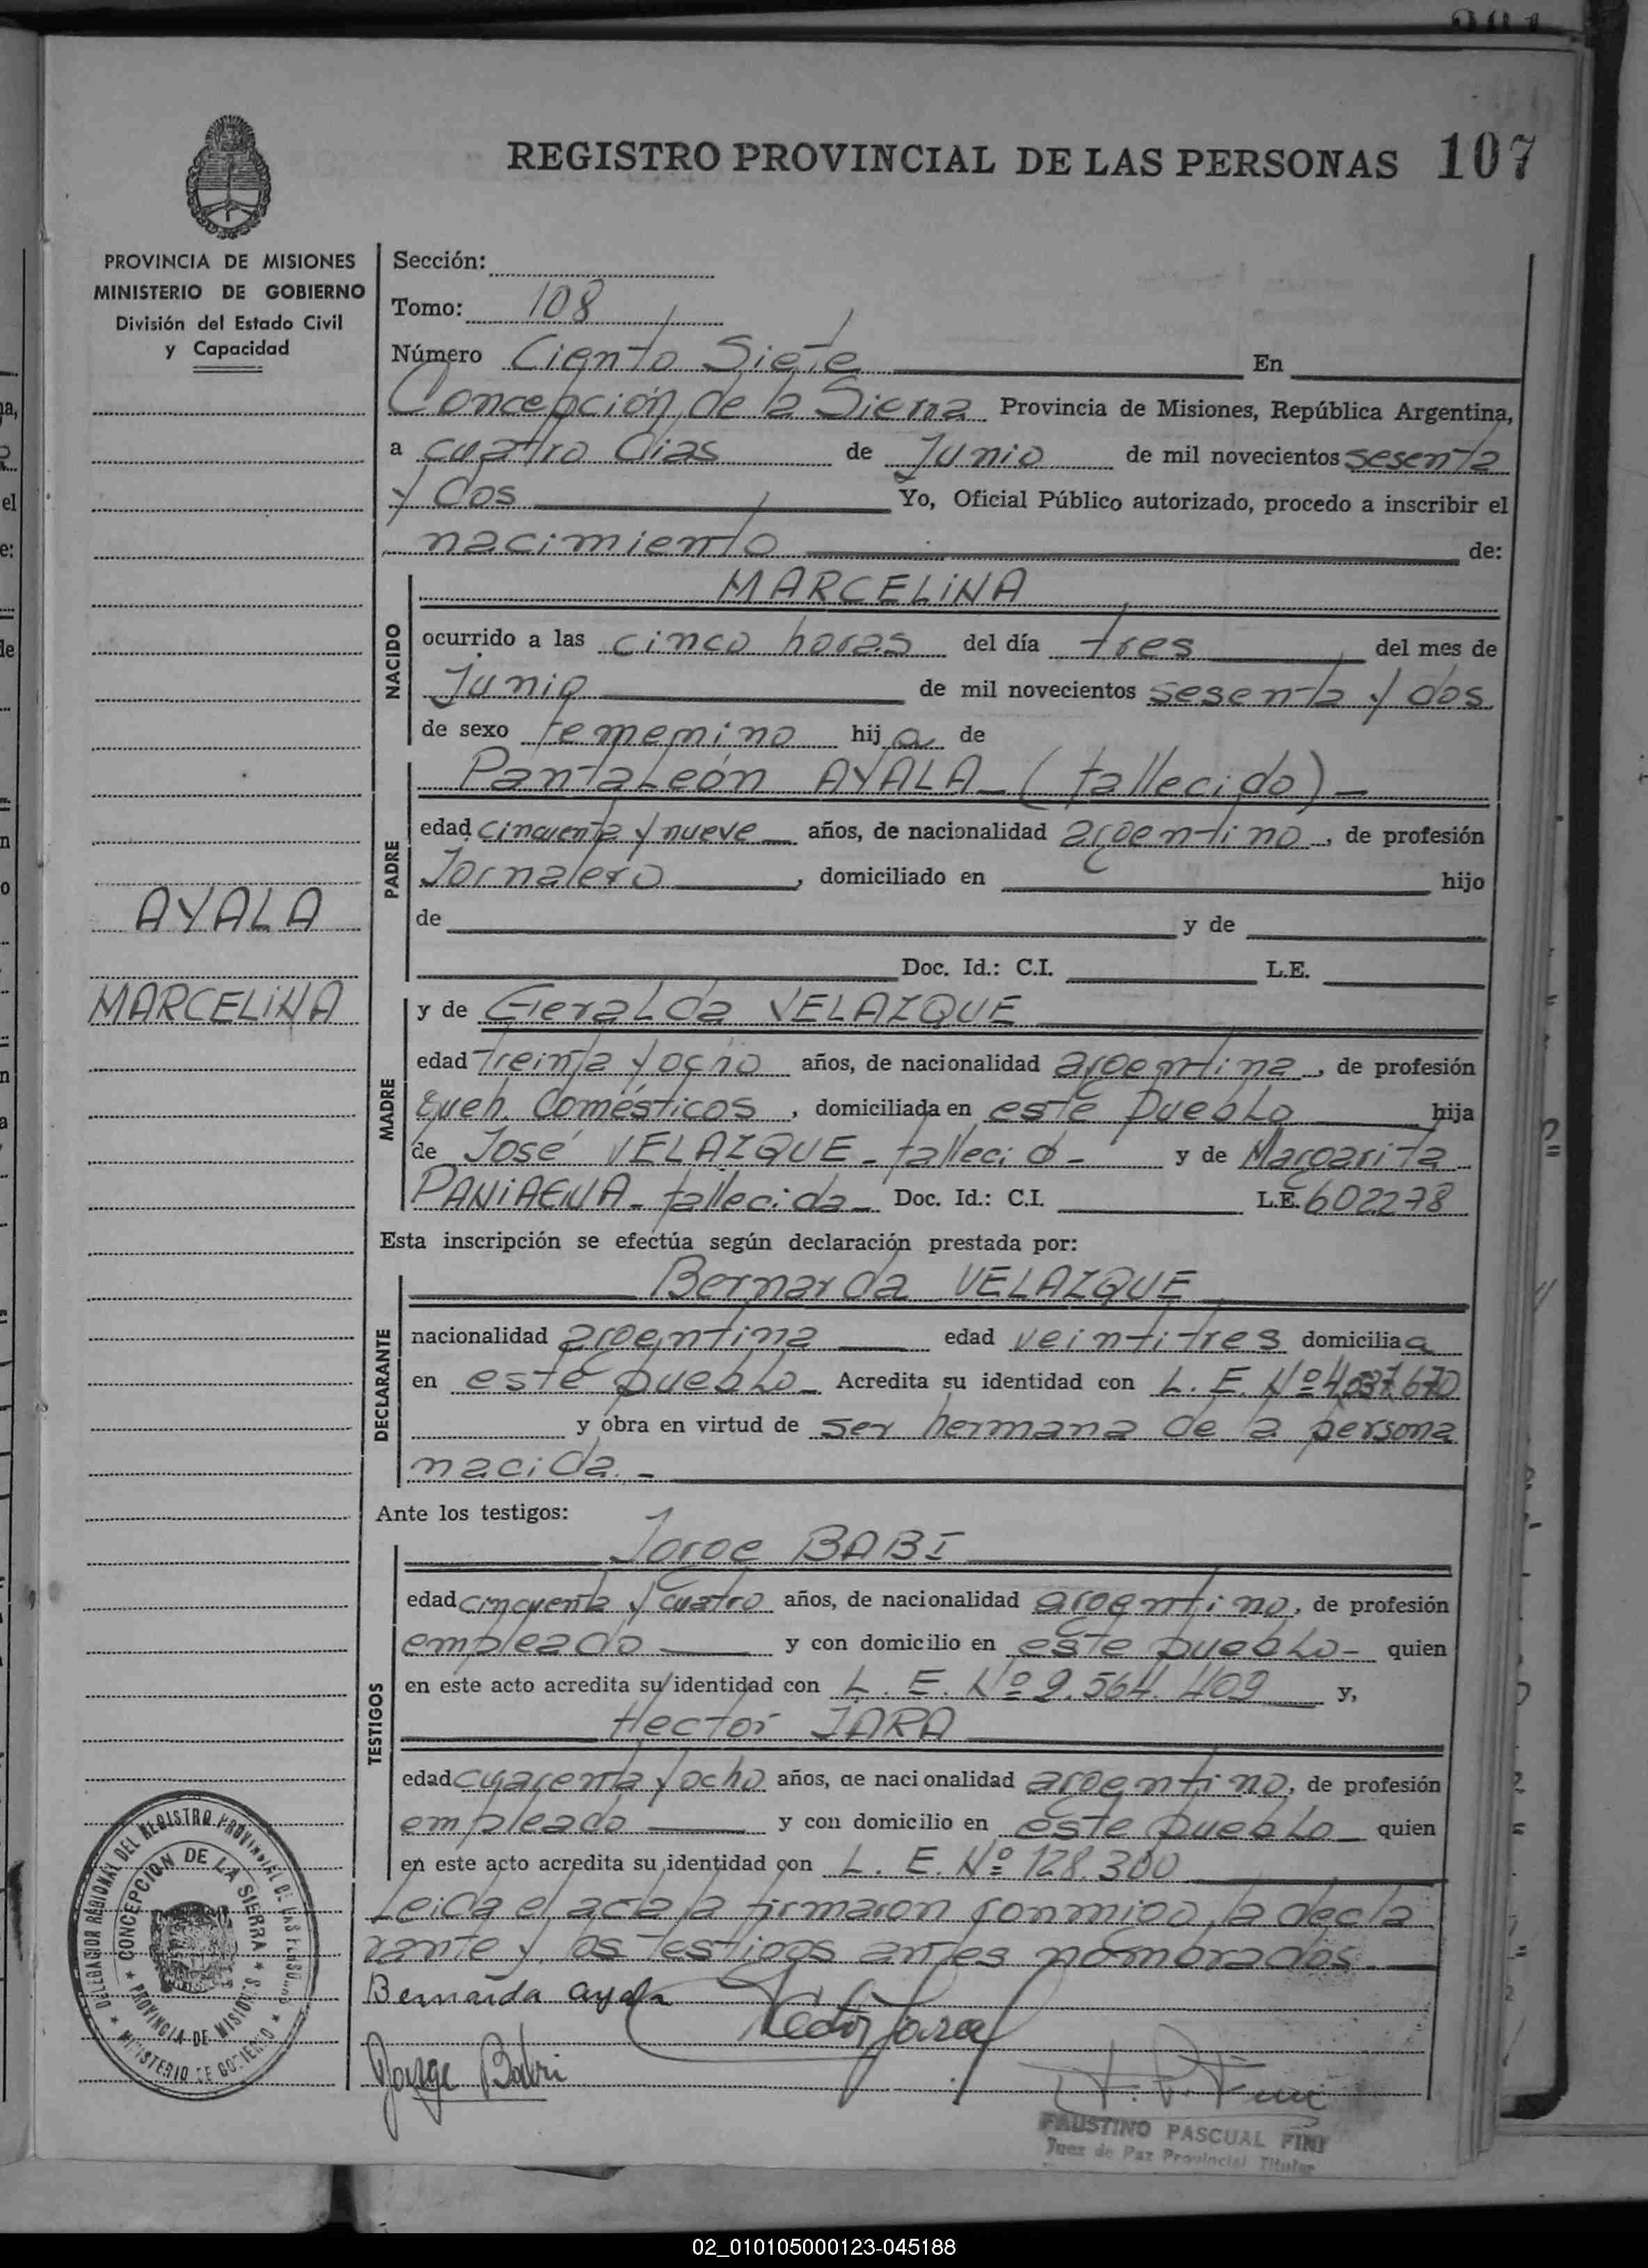 REGISTRO PROVINCIAL DE LAS PERSONAS 107
PROVINCIA DE MISIONES
MINISTERIO DE GOBIERNO
División del Estado Civil
y Capacidad
AYALA
MARCELINA
Sección:
Tomo: 108
Número Ciento Siete En
Concepción de la Sierra Provincia de Misiones, República Argentina,
a cuatro dias de Junio de mil novecientos sesenta
y dos Yo, Oficial Público autorizado, procedo a inscribir el
nacimiento de:
NACIDO
MARCELINA
ocurrido a las cinco horas del día tres del mes de
Junio de mil novecientos sesenta y dos
de sexo femenino hija de
PADRE
Pantaleón AYALA - (fallecido) -
edad cincuenta y nueve años, de nacionalidad argentino, de profesión
Jornalero, domiciliado en hijo
de y de
Doc. Id.: C.I. L.E.
MADRE
y de Geralda VELAZQUE
edad treinta y ocho años, de nacionalidad argentina, de profesión
Queh. Domésticos, domiciliada en este pueblo hija
de José VELAZQUE - falleció - y de Margarita
fallecida - Doc. Id.: C.I. L.E. 602278
Esta inscripción se efectúa según declaración prestada por:
DECLARANTE
Bernarda VELAZQUE
nacionalidad argentina edad veintitres domicilia a
en este pueblo - Acredita su identidad con L. E. Nº 4.037.670
y obra en virtud de ser hermana de la persona
nacida. -
Ante los testigos:
TESTIGOS
Jorge BABI
edad cincuenta y cuatro años, de nacionalidad argentino, de profesión
empleado y con domicilio en este pueblo - quien
en este acto acredita su identidad con L. E. Nº 9.564.409 y,
Hector JARA
edad cuarenta y ocho años, de nacionalidad argentino, de profesión
empleado y con domicilio en este pueblo - quien
en este acto acredita su identidad con L. E. Nº 128.300
Leida el acta la firmaron conmigo, la decla
rante y los testigos antes nombrados. -
Bernarda Ayala
Hector Jara
Jorge Babi
FAUSTINO PASCUAL FINI
Juez de Paz Provincial Titular
DELEGACION REGIONAL DEL REGISTRO PROVINCIAL DE LAS PERSONAS
MINISTERIO DE GOBIERNO
CONCEPCION DE LA SIERRA
PROVINCIA DE MISIONES
02_010105000123-045188